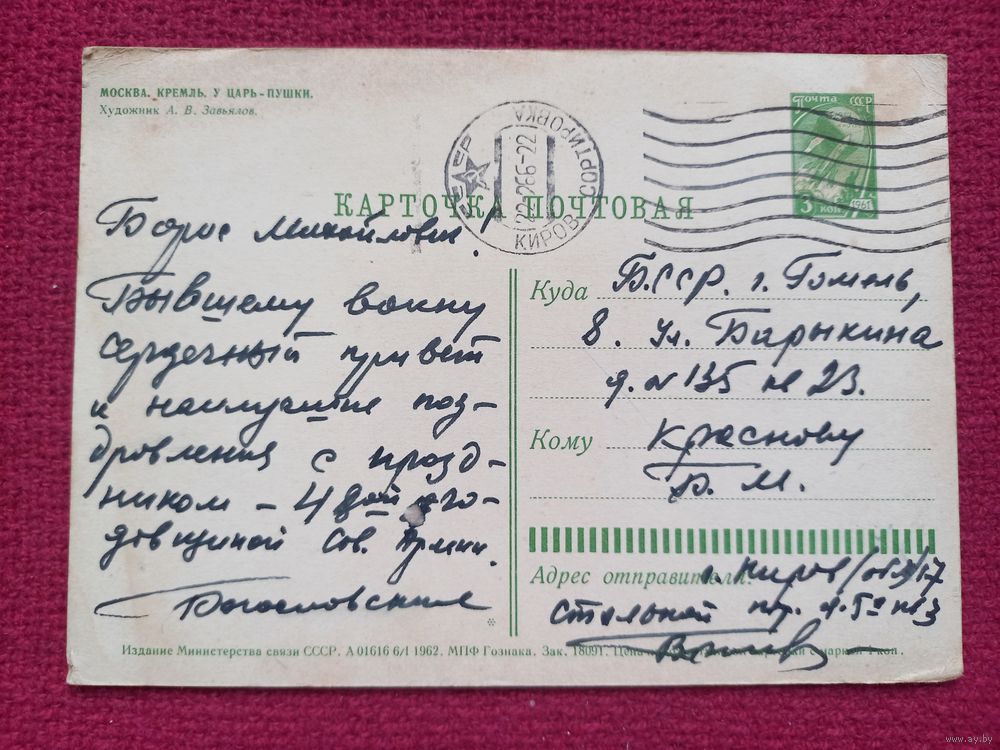 МОСКВА. КРЕМЛЬ. У ЦАРЬ-ПУШКИ.
Художник А. В. Завьялов.
Почта СССР
3 коп
1961
СССР
КИРОВ СОРТИРОВКА
22-266-22
КАРТОЧКА ПОЧТОВАЯ
Борис Михайлович!
Бывшему воину
сердечный привет
и наилучшие поз-
дровления с празд-
ником – 48ой го-
довщиной Сов. Армии.
Богословские
Куда Б.ССР. г. Гомель,
8. Ул. Барыкина
д. № 135 кв 23.
Кому Краснову
Б. М.
Адрес отправителя:
г. Киров
*
Издание Министерства связи СССР. А 01616 6/I 1962. МПФ Гознака. Зак. 18091. Цена с маркой 4 коп.
www.ay.by